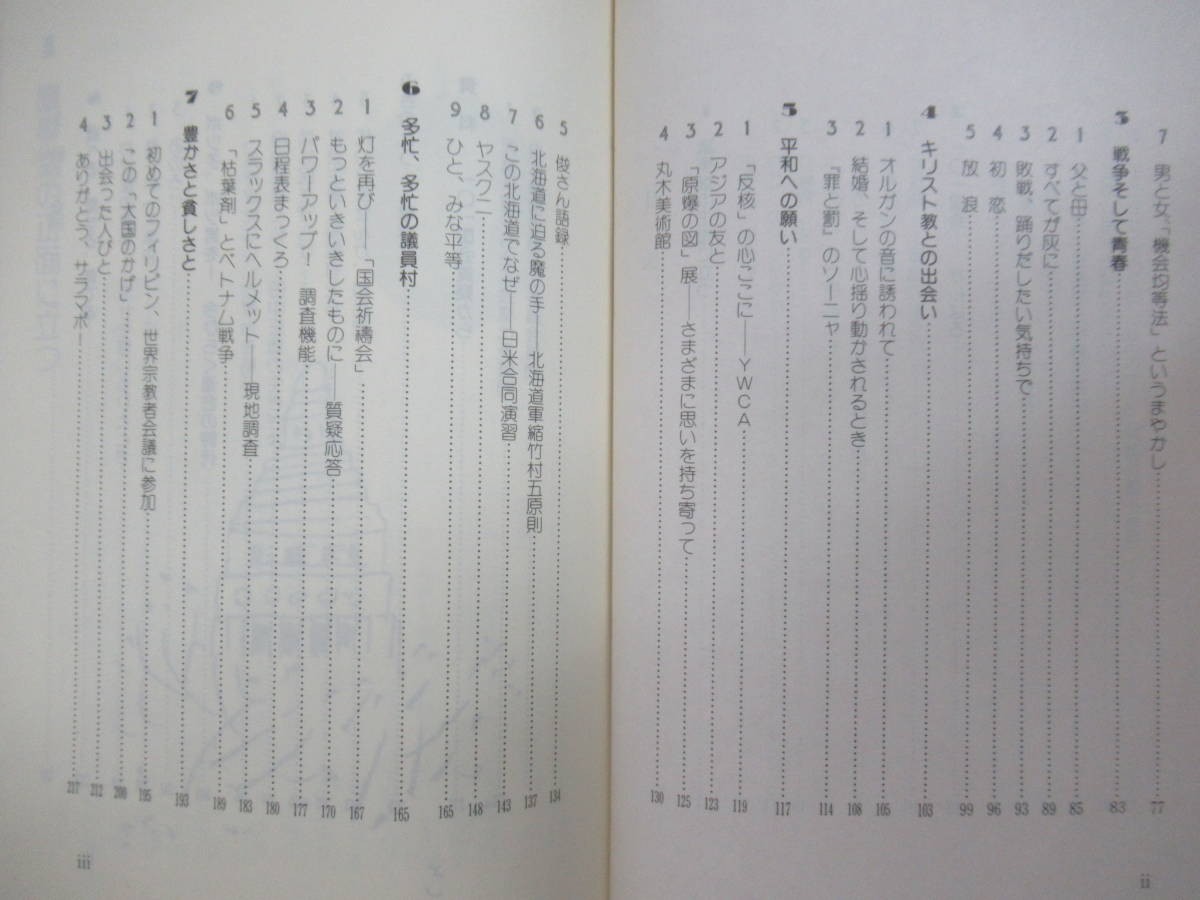 7 男と女、「機会均等法」というまやかし……77
3 戦争そして青春……83
1 父と母……85
2 すべてが灰に……89
3 敗戦、踊りだしたい気持ちで……93
4 初恋……96
5 放浪……99
4 キリスト教との出会い……103
1 オルガンの音に誘われて……105
2 結婚、そして心揺り動かされるとき……108
3 『罪と罰』のソーニャ……114
5 平和への願い……117
1 「反核」の心ここに——YWCA……119
2 アジアの友と……123
3 「原爆の図」展——さまざまに思いを持ち寄って……125
4 丸木美術館……130
ii
5 俊さん語録……134
6 北海道に迫る魔の手——北海道軍縮竹村五原則……137
7 この北海道でなぜ——日米合同演習……143
8 ヤスクニ……148
9 ひと、みな平等……165
6 多忙、多忙の議員村……165
1 灯を再び——「国会祈禱会」……167
2 もっといきいきしたものに——質疑応答……170
3 パワーアップ! 調査機能……177
4 日程表まっくろ……180
5 スラックスにヘルメット——現地調査……183
6 「枯葉剤」とベトナム戦争……189
7 豊かさと貧しさと……193
1 初めてのフィリピン、世界宗教者会議に参加……195
2 この「大国のかげ」……200
3 出会った人びと……212
4 ありがとう、サラマポー……217
iii